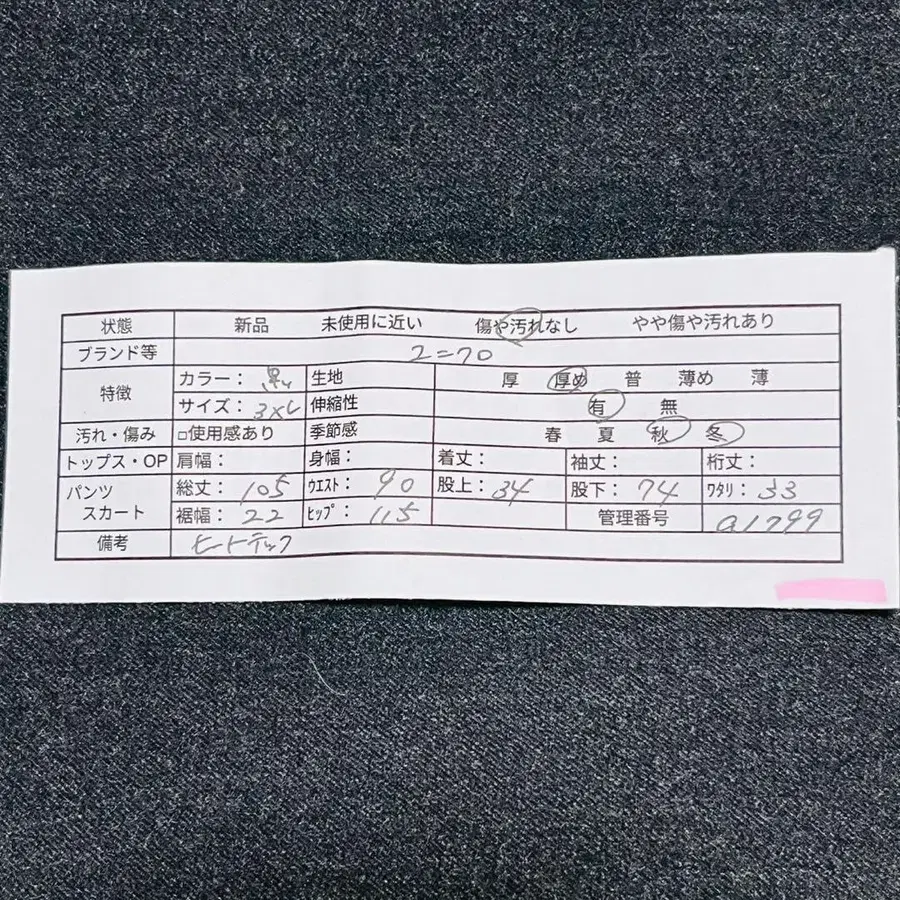 状態 新品 未使用に近い 傷や汚れなし やや傷や汚れあり
ブランド等 ユニクロ
特徴 カラー： 黒 生地 厚 厚め 普 薄め 薄
サイズ： 3XL 伸縮性 有 無
汚れ・傷み □使用感あり 季節感 春 夏 秋 冬
トップス・OP 肩幅： 身幅： 着丈： 袖丈： 桁丈：
パンツ スカート 総丈： 105 ｳｴｽﾄ： 90 股上： 34 股下： 74 ﾜﾀﾘ： 33
裾幅： 22 ﾋｯﾌﾟ： 115 管理番号 a1799
備考 ヒートテック